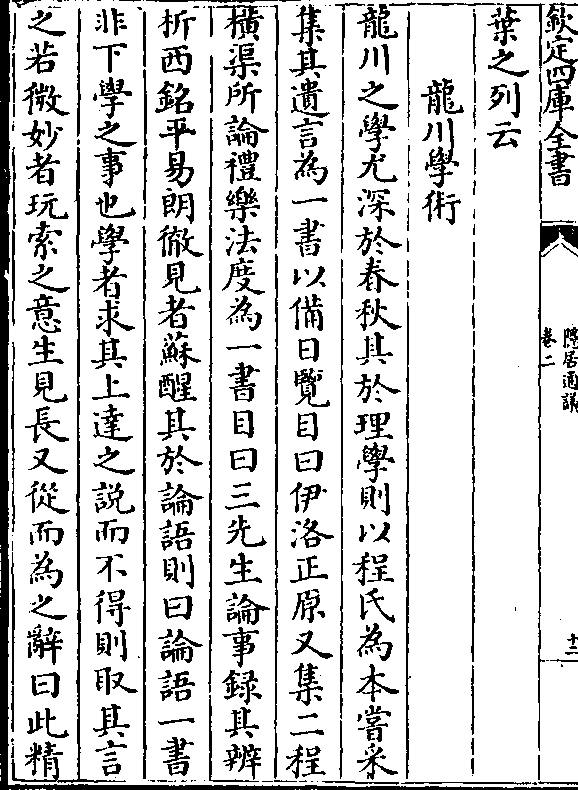 欽定四庫全書
隱居通議
卷二
十二
葉之列云
龍川學術
龍川之學尤深於春秋其於理學則以程氏為本嘗采
集其遺言為一書以備日覽目曰伊洛正原又集二程
橫渠所論禮樂法度為一書目曰三先生論事録其辨
析西銘平易朗徹見者蘇醒其於論語則曰論語一書
非下學之事也學者求其上達之説而不得則取其言
之若微妙者玩索之意生見長又從而為之辭曰此精